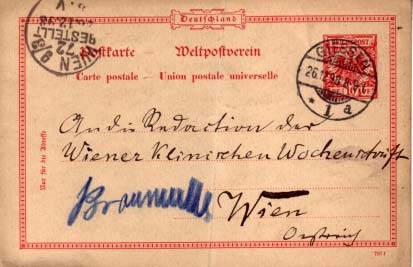 Deutschland
Postkarte Weltpostverein
Carte postale - Union postale universelle
WIEN 9/3
72
BESTELLT
GIESSEN
26.12.93.8-9
* 1 a
Nur für die Adresse
An die Redaction der
Wiener Klinischen Wochenschrift
Braumüller
Wien
Oestreich